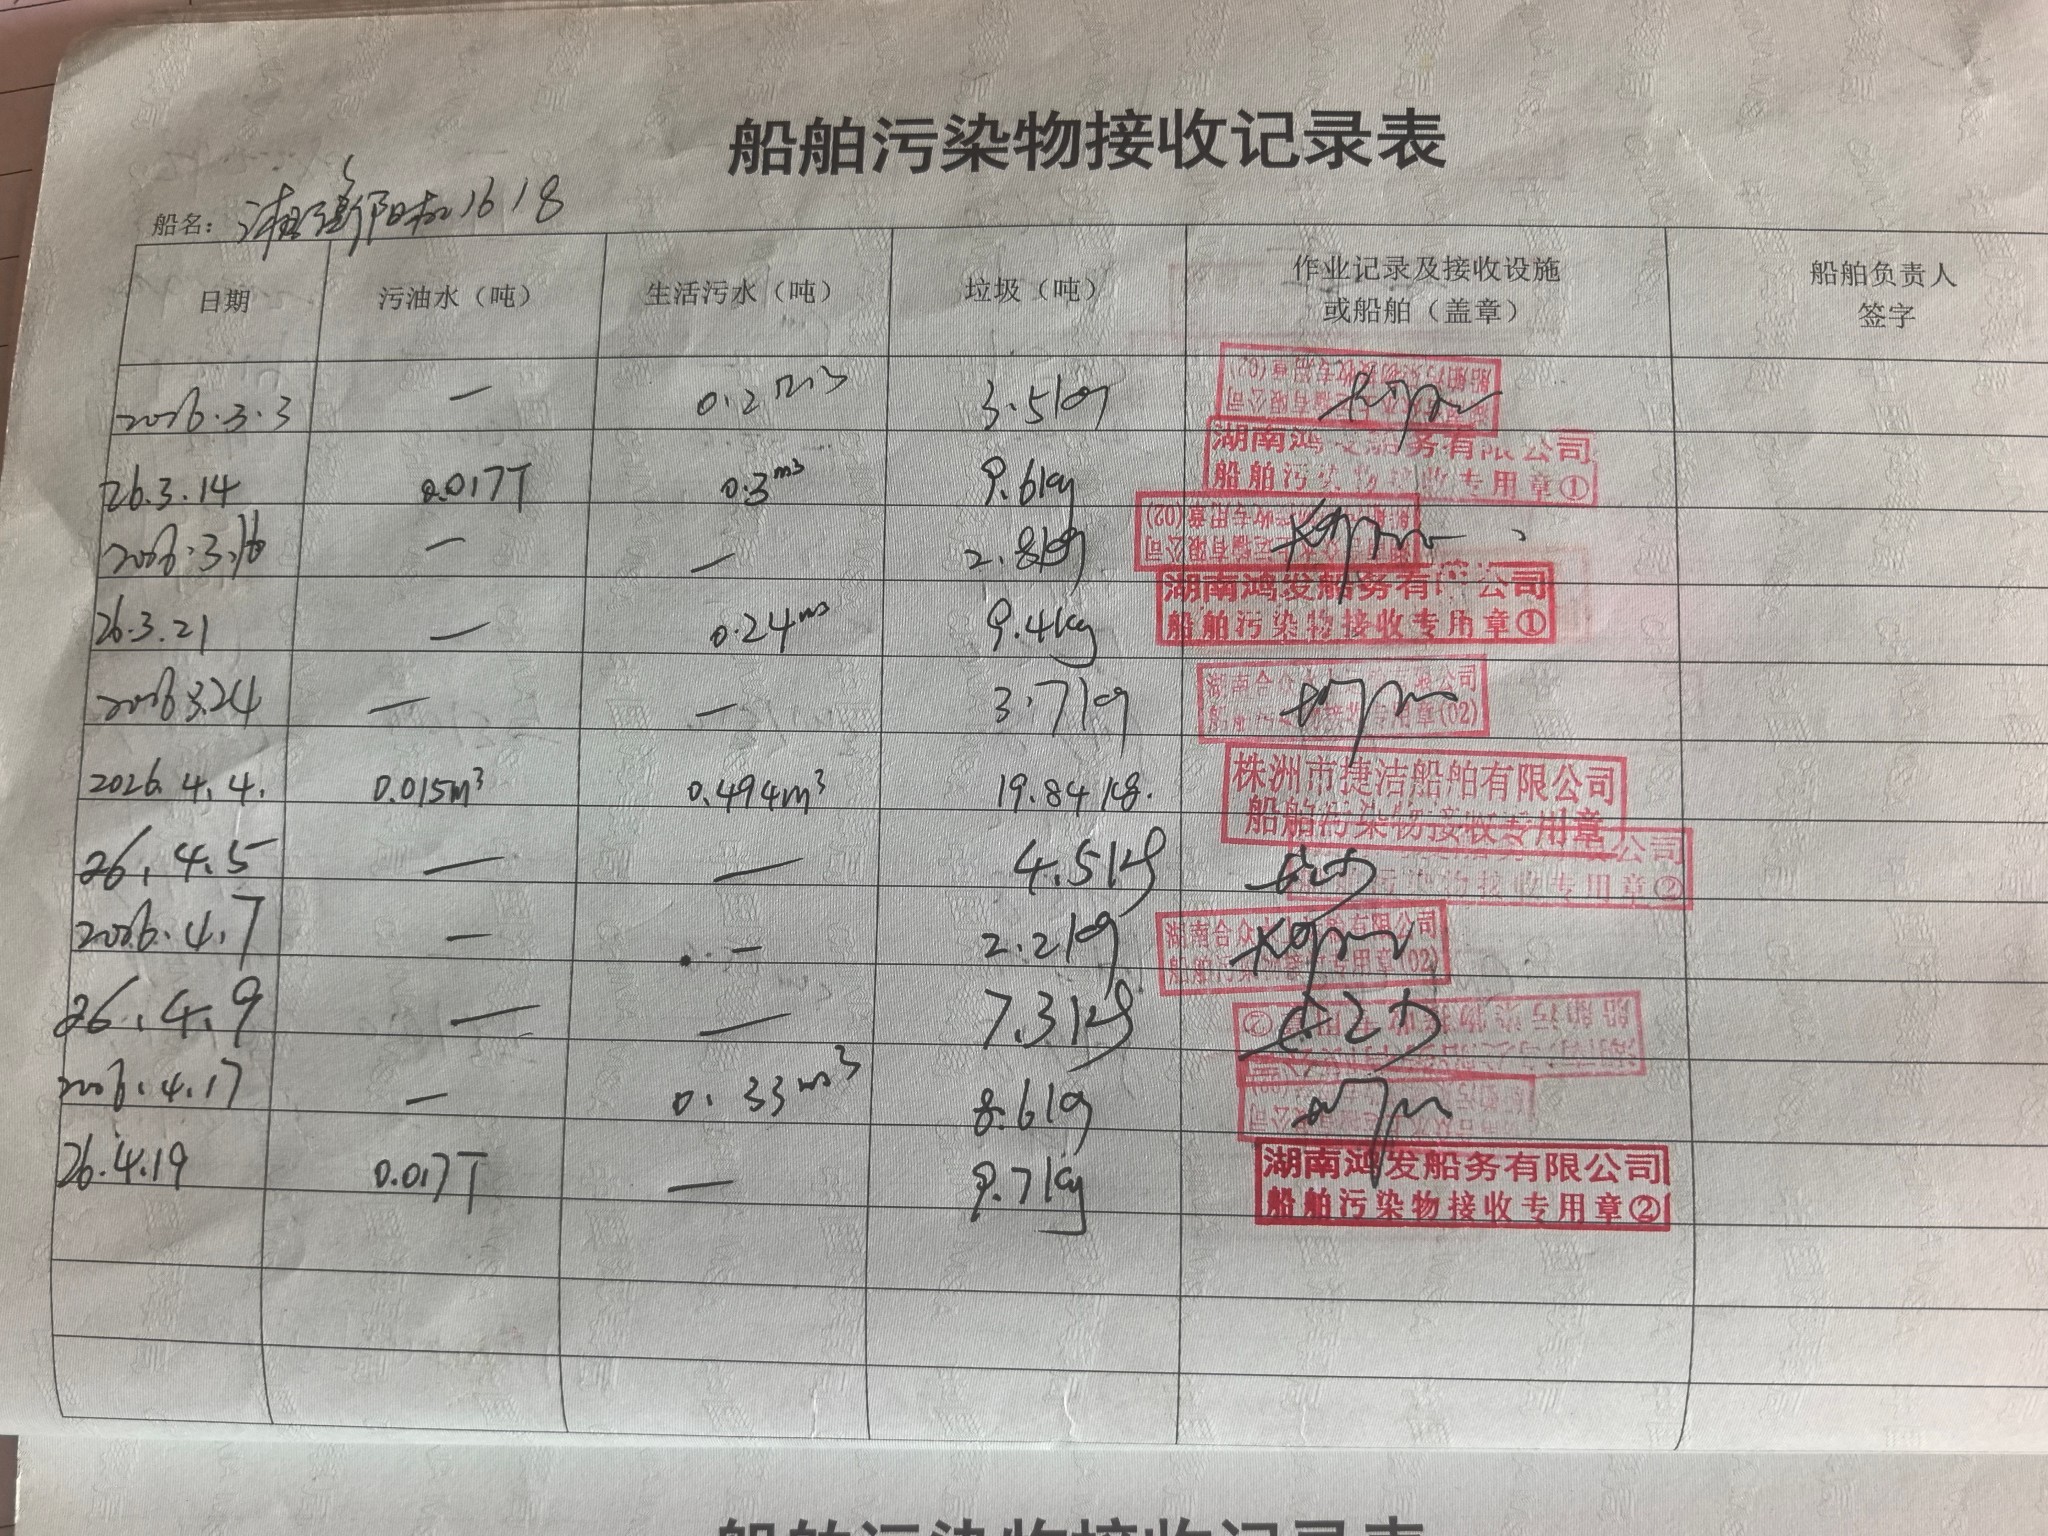 船舶污染物接收记录表
船名: 湘衡阳机1618
日期 污油水（吨） 生活污水（吨） 垃圾（吨） 作业记录及接收设施或船舶（盖章） 船舶负责人签字
2026.3.3 — 0.2m³ 3.5kg 船舶污染物接收专用章(02)
26.3.14 0.017T 0.3m³ 9.6kg 湖南鸿发船务有限公司 船舶污染物接收专用章①
2026.3.16 — — 2.8kg 船舶污染物接收专用章(02)
26.3.21 — 0.24m³ 9.4kg 湖南鸿发船务有限公司 船舶污染物接收专用章①
2026.3.24 — — 3.7kg 湖南合众水上运输有限公司 船舶污染物接收专用章(02)
2026.4.4. 0.015m³ 0.494m³ 19.84kg. 株洲市捷洁船舶有限公司 船舶污染物接收专用章
26.4.5 — — 4.5kg 船务有限公司 船舶污染物接收专用章②
2026.4.7 — — 2.2kg 湖南合众水上运输有限公司 船舶污染物接收专用章(02)
26.4.9 — — 7.3kg 船舶污染物接收专用章②
2026.4.17 — 0.33m³ 8.6kg
26.4.19 0.017T — 9.7kg 湖南鸿发船务有限公司 船舶污染物接收专用章②
船舶污染物接收记录表